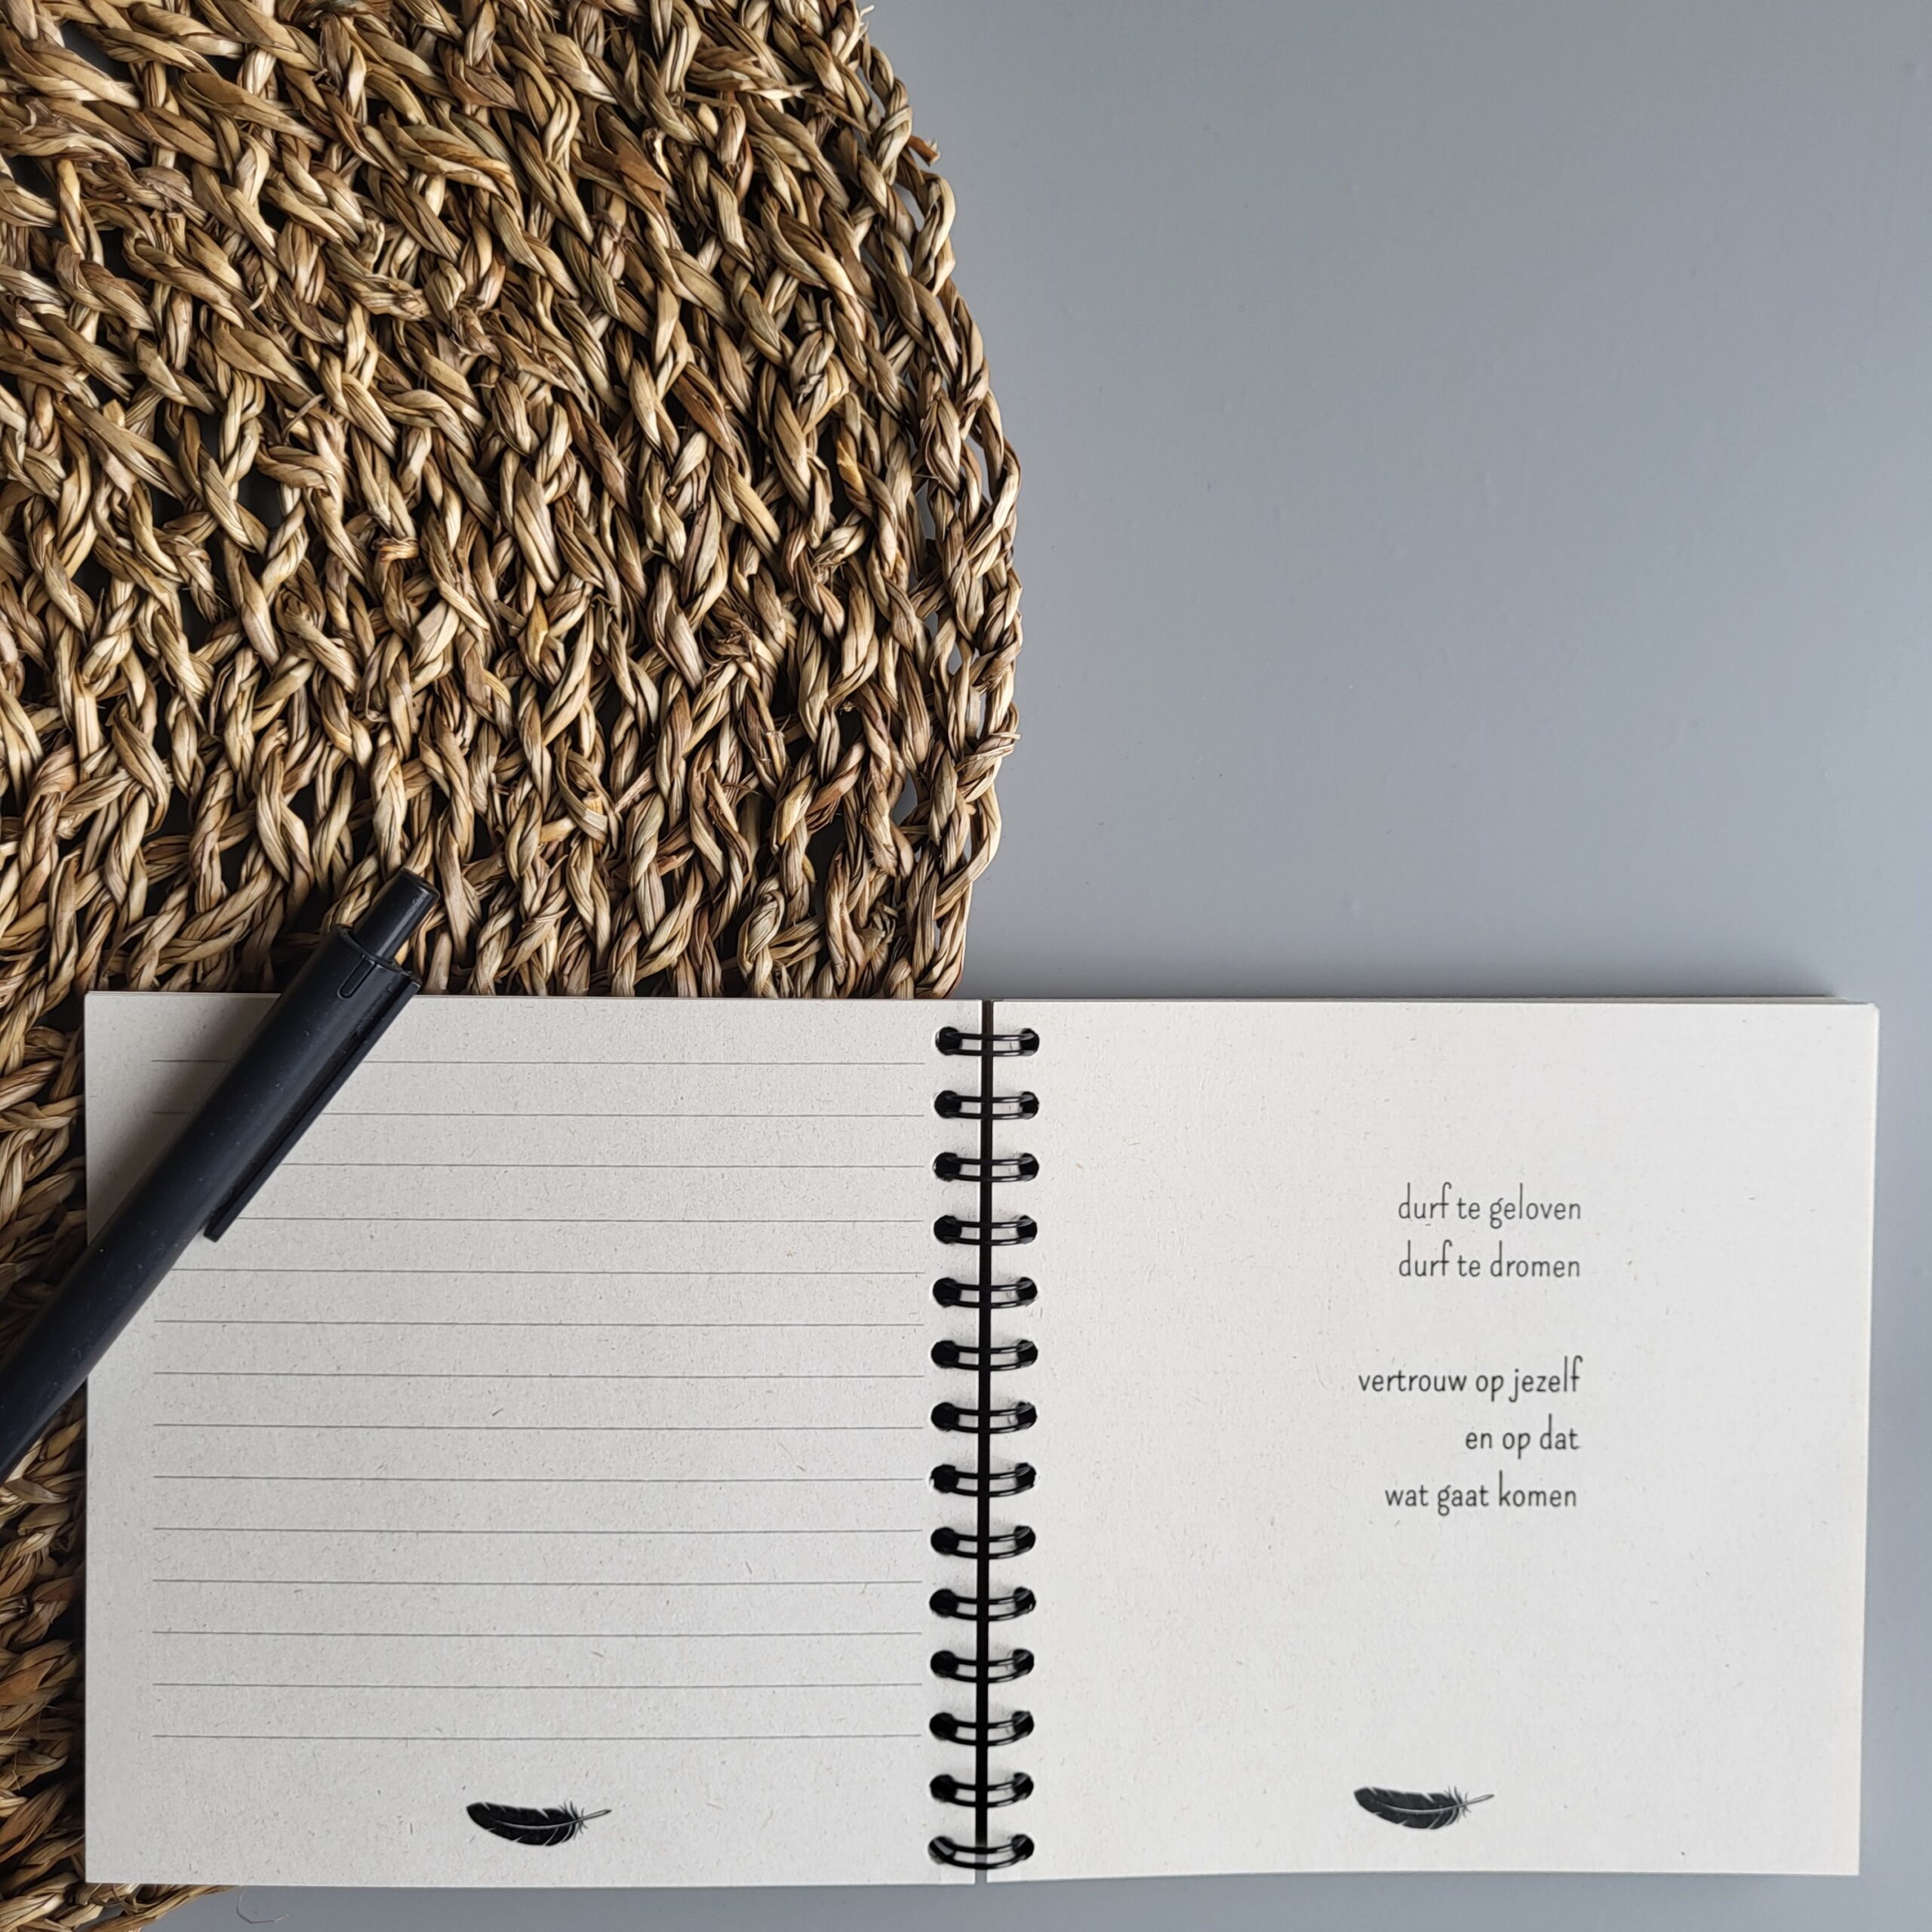 durf te geloven
durf te dromen
vertrouw op jezelf
en op dat
wat gaat komen